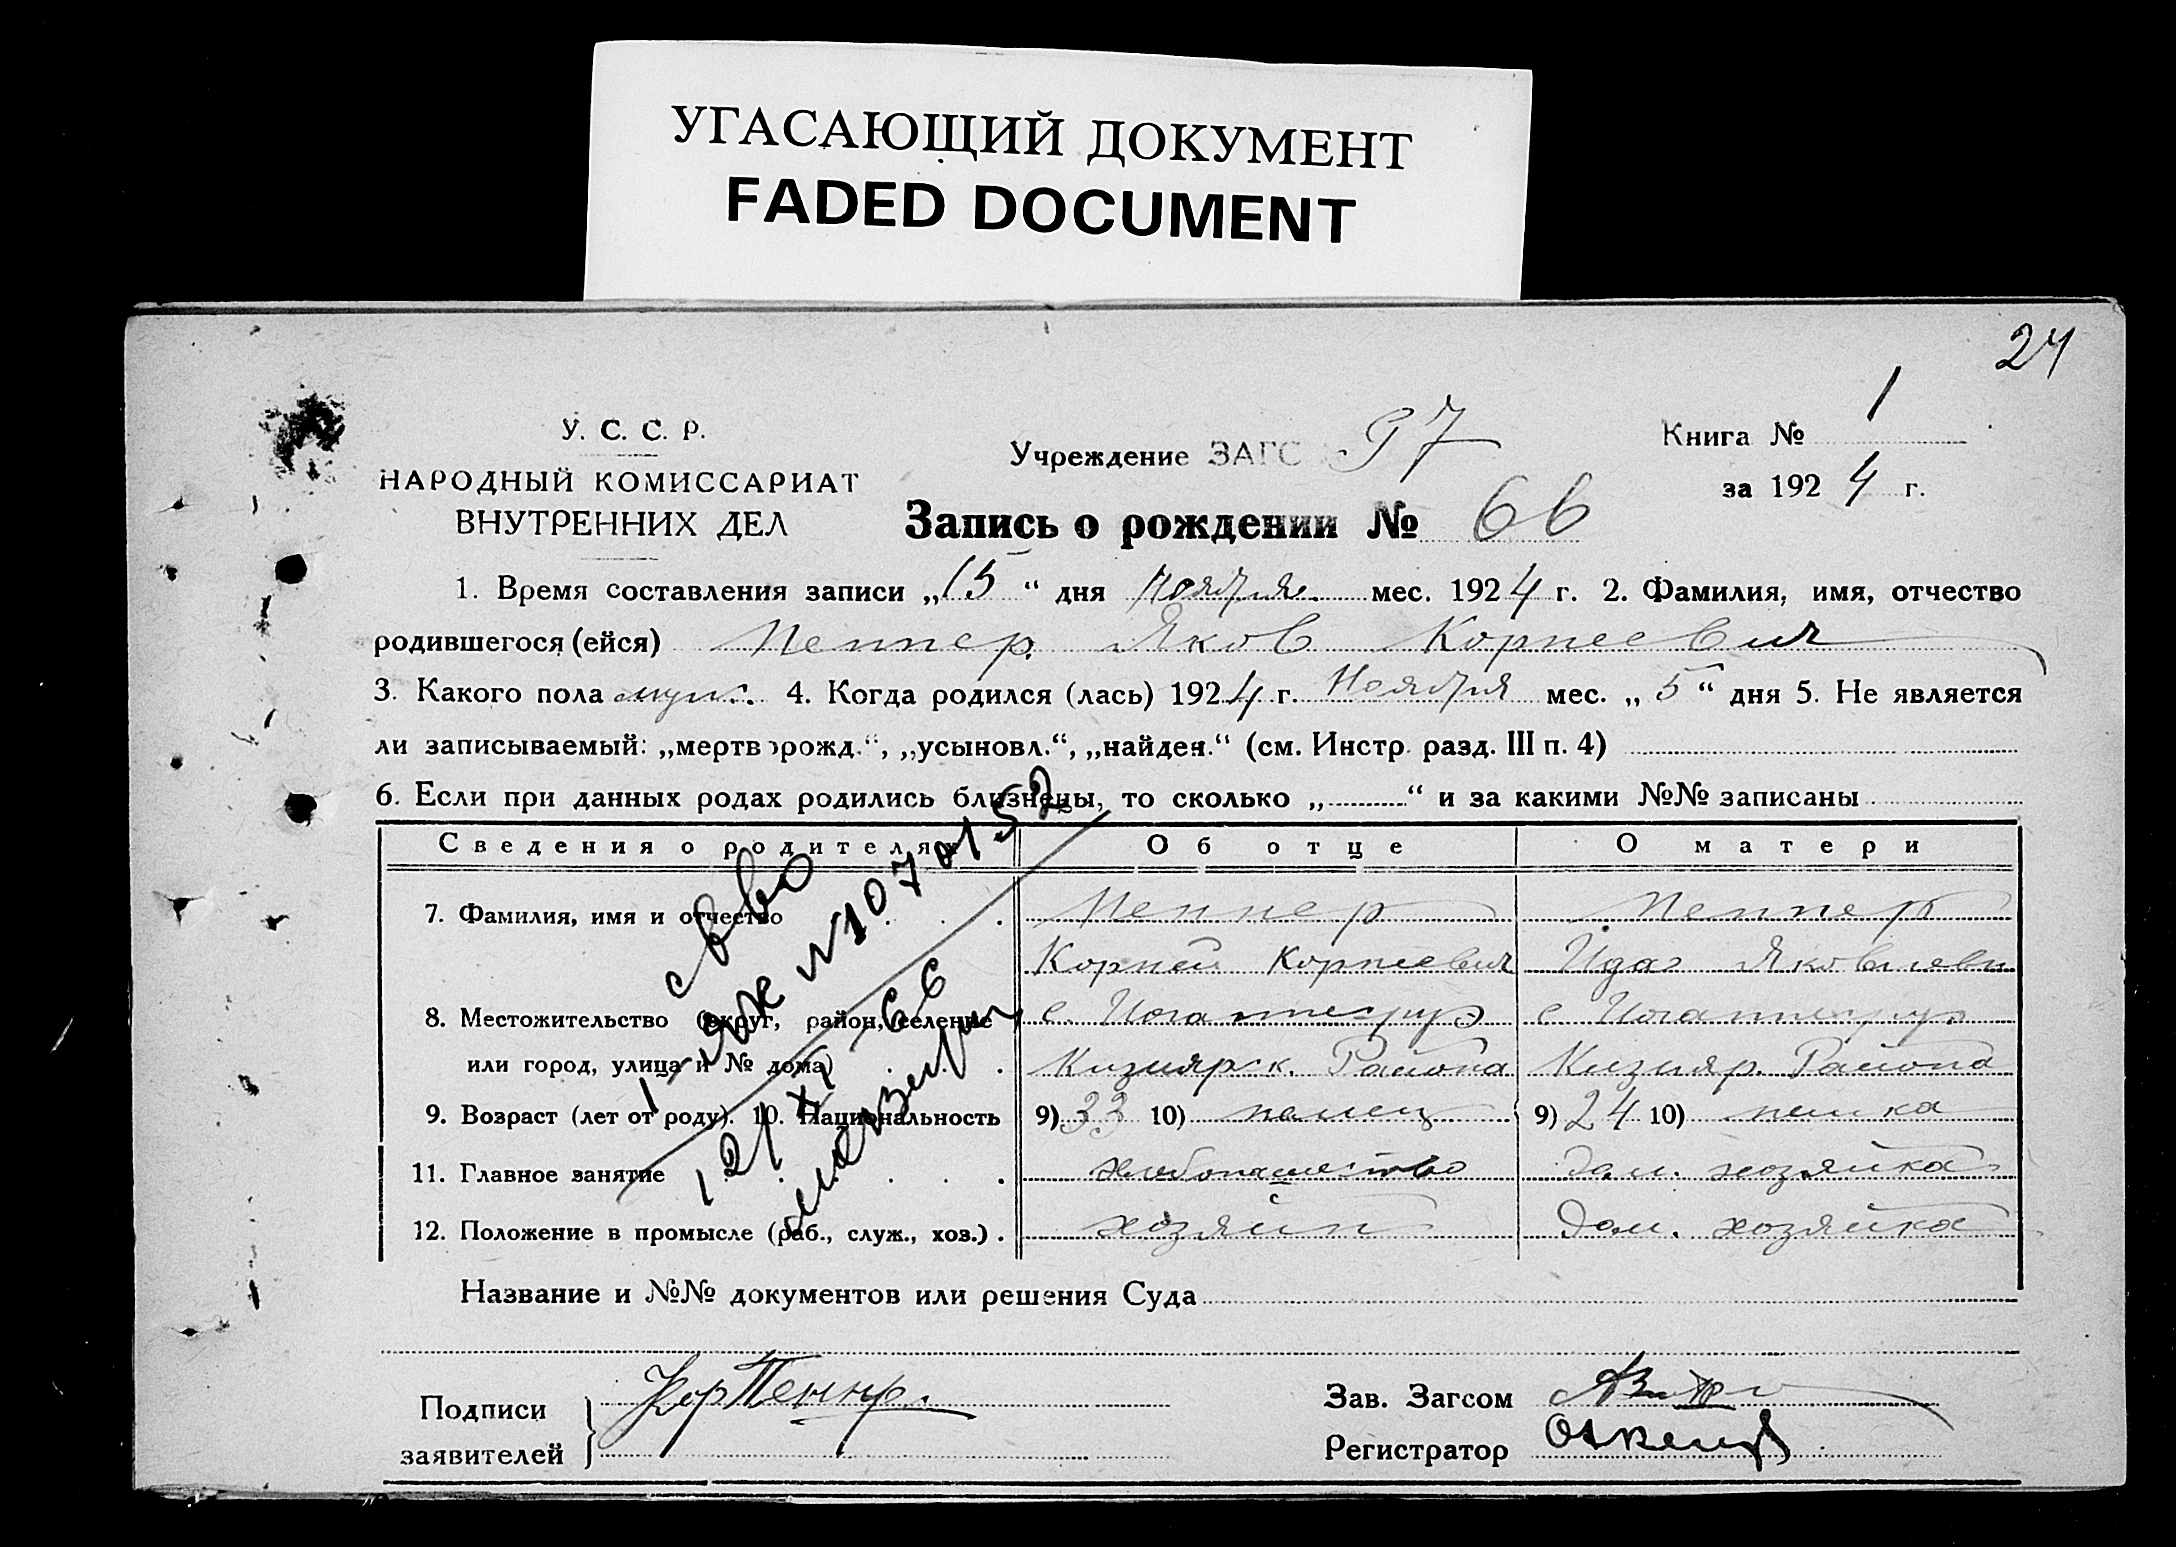 УГАСАЮЩИЙ ДОКУМЕНТ
FADED DOCUMENT
24
У. С. С. Р.
НАРОДНЫЙ КОМИССАРИАТ
ВНУТРЕННИХ ДЕЛ
Учреждение ЗАГС 97
Книга № 1
за 1924 г.
Запись о рождении № 66
1. Время составления записи „15“ дня ноября мес. 1924 г. 2. Фамилия, имя, отчество
родившегося (ейся) Пеннер Яков Корнеевич
3. Какого пола муж. 4. Когда родился (лась) 1924 г. Ноября мес. „5“ дня 5. Не является
ли записываемый: „мертворожд.“, „усыновл.“, „найден.“ (см. Инстр. разд. III п. 4)
6. Если при данных родах родились близнецы, то сколько „ “ и за какими №№ записаны
Сведения о родителях Об отце О матери
7. Фамилия, имя и отчество Пеннер Пеннер
Корней Корнеевич Ида Яковлевн
8. Местожительство (округ, район, селение с. Иоганнесруэ с Иоганнесруэ
или город, улица и № дома) Кизиярск. Района Кизияр. Района
9. Возраст (лет от роду). 10. Национальность 9) 33 10) немец 9) 24 10) немка
11. Главное занятие хлебопашество Дом. хозяйка
12. Положение в промысле (раб., служ., хоз.) хозяин Дом. хозяйка
с в во
1-ЯЖ №1070152
121 XI-66
Название и №№ документов или решения Суда
Подписи
заявителей
Кор Пеннер.
Зав. Загсом
Регистратор